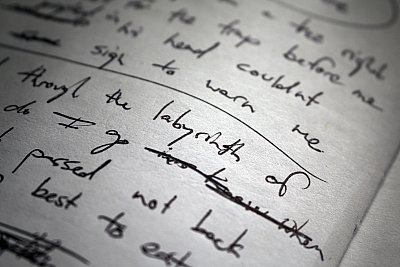 the right
the traps before me
his head couldn't
sign to warn me
through the labyrinth of
do I go
passed not back
best to eat